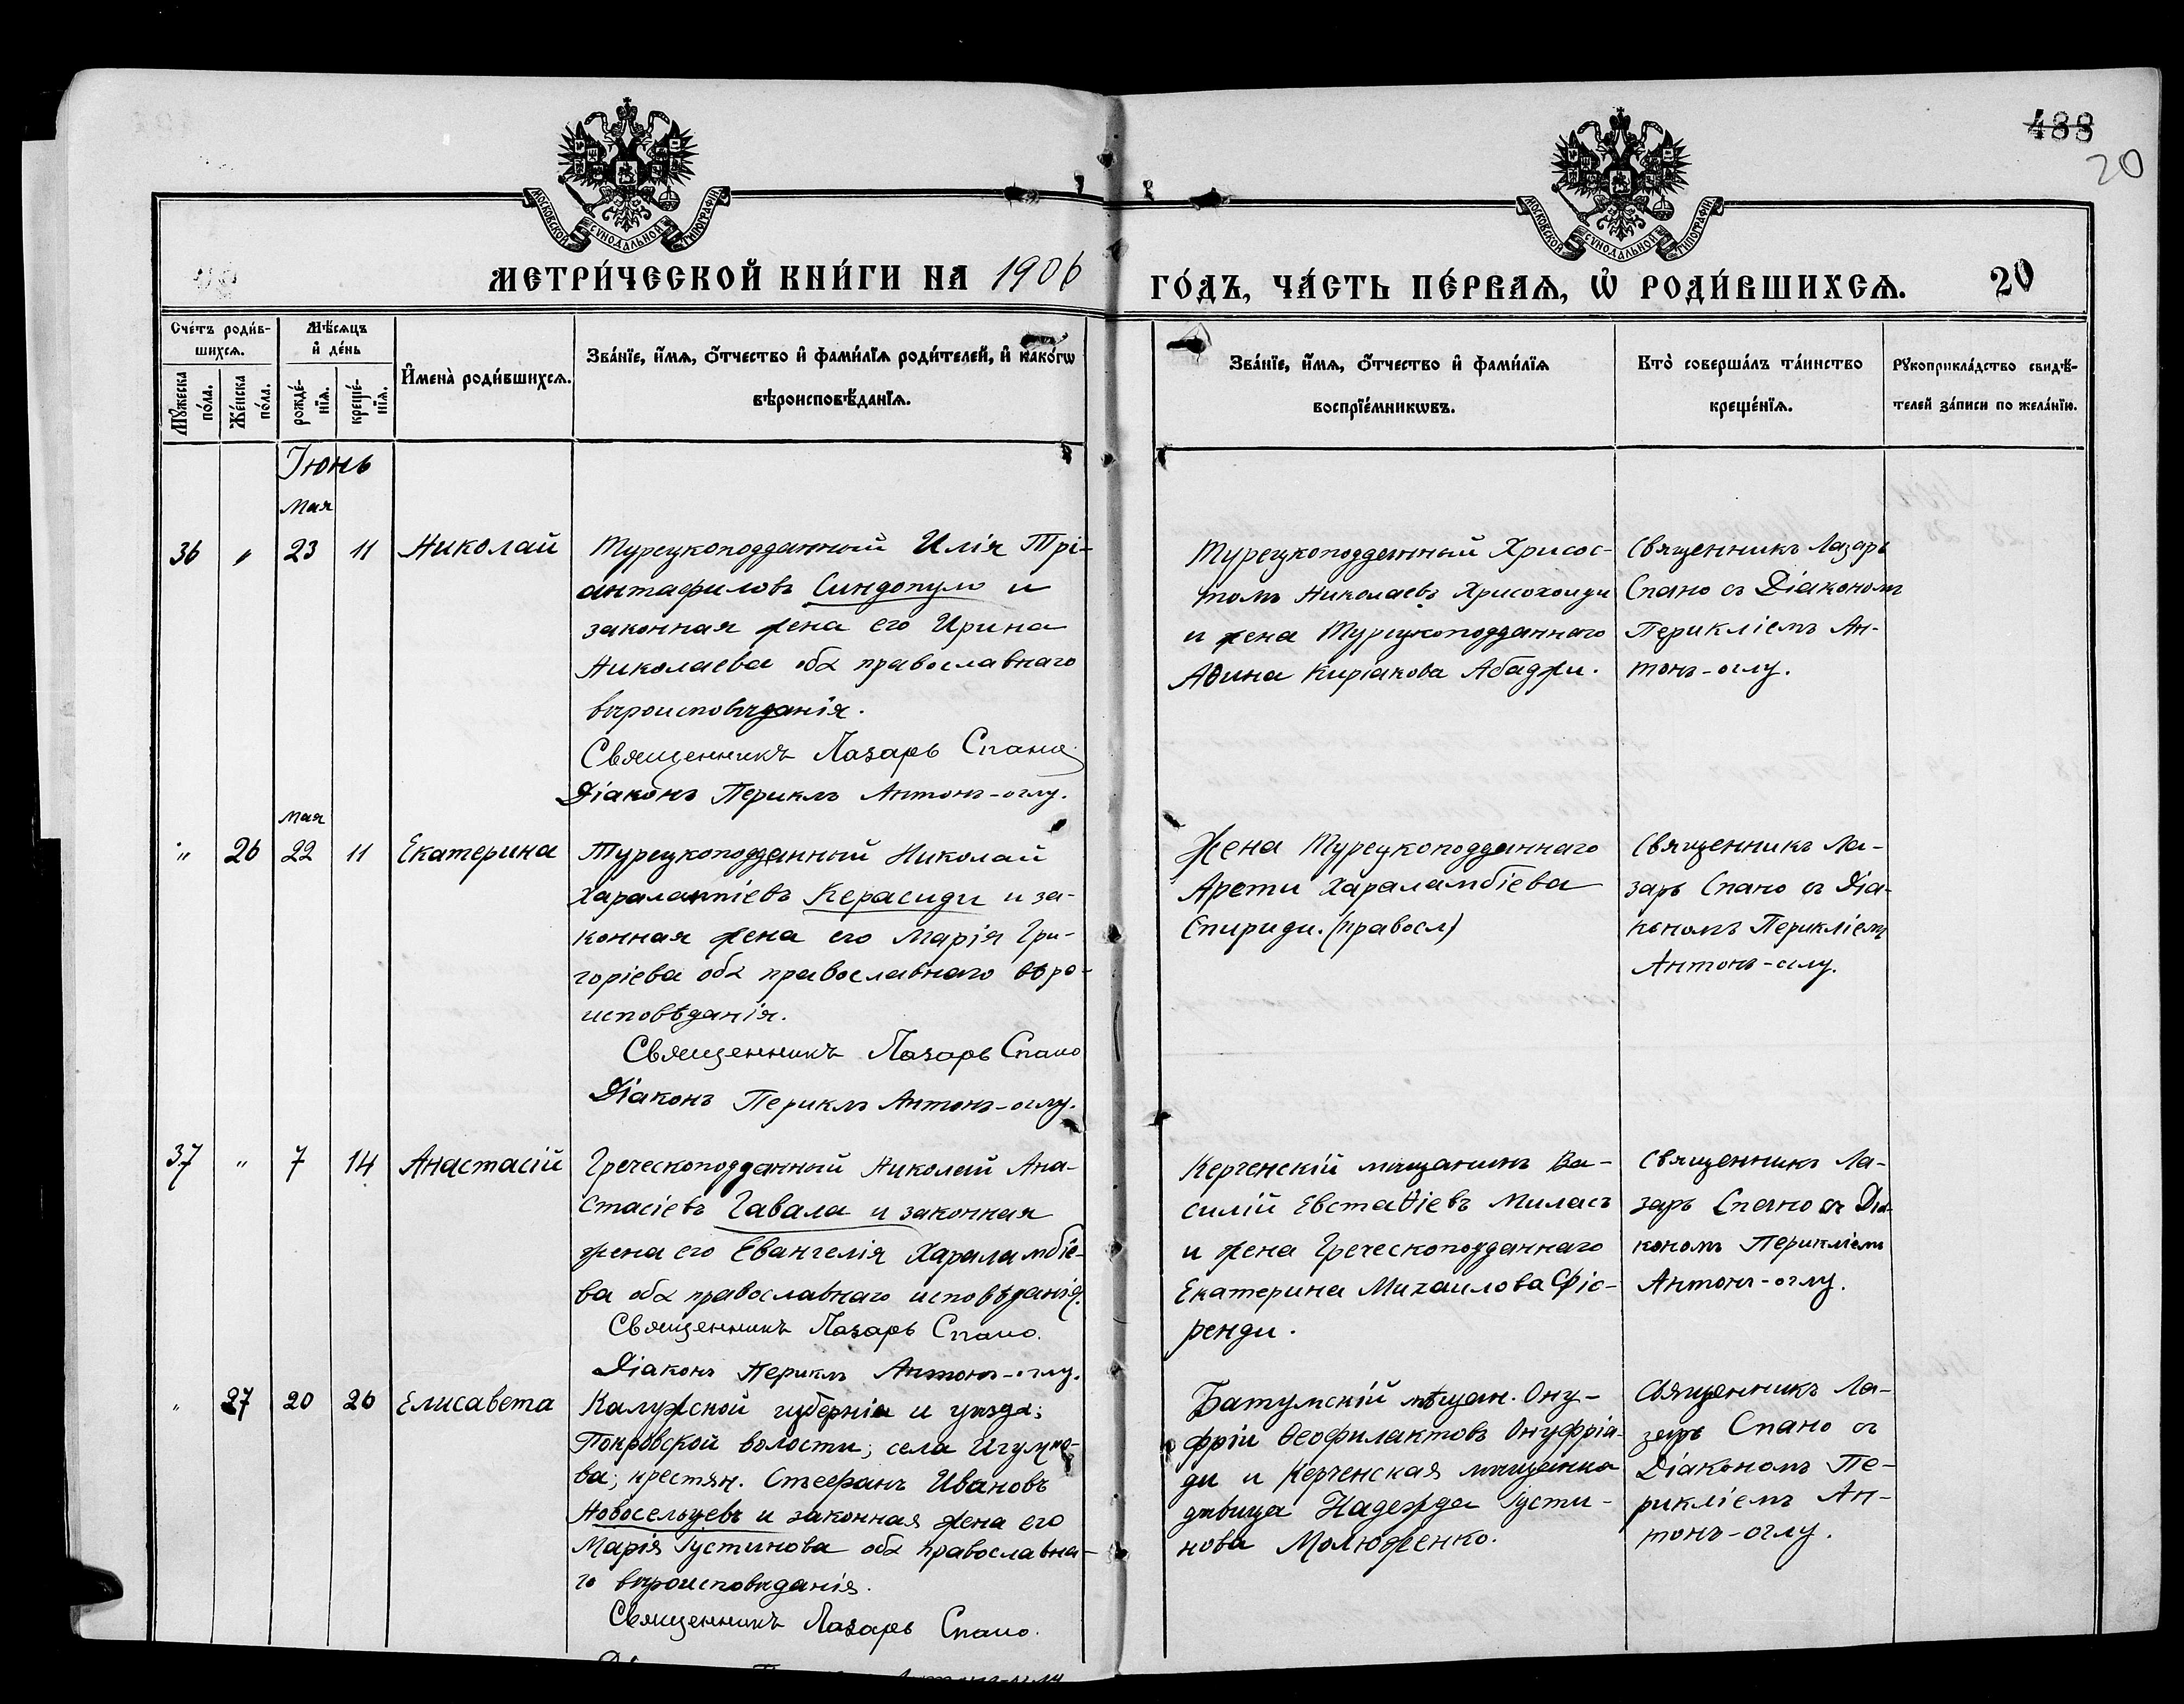 488
20
МОСКОВСКОЙ СѴНОДАЛЬНОЙ ТИПОГРАФІИ
МОСКОВСКОЙ СѴНОДАЛЬНОЙ ТИПОГРАФІИ
МЕТРИ́ЧЕСКОЙ КНИ́ГИ НА 1906
ГО́ДЪ, ЧА́СТЬ ПЕ́РВАѦ, Ѡ҆ РОДИ́ВШИХСѦ. 20
Сче́тъ роди́в-
шихсѧ.
Мꙋ́жеска по́ла.
Же́нска по́ла.
Мѣ́сѧцъ
и҆ де́нь
рожде́-
нїѧ.
креще́-
нїѧ.
И҆мена̀ роди́вшихсѧ.
Зва́нїе, и҆́мѧ, ѻ҆́тчество и҆ фами́лїѧ роди́телей, и҆ како́гѡ
вѣроисповѣ́данїѧ.
Зва́нїе, и҆́мѧ, ѻ҆́тчество и҆ фами́лїѧ
воспрїе́мникѡвъ.
Кто̀ соверша́лъ та́инство
креще́нїѧ.
Рꙋкоприкла́дство свидѣ́-
телей за́писи по жела́нїю.
Іюнь
Мая
36 " 23 11 Николай
Турецкоподданный Илія Трі-
антафиловъ Синдопуло и
законная жена его Ирина
Николаева оба православнаго
вѣроисповѣданія.
Священникъ Лазарь Спано
Діаконъ Периклъ Антонъ-оглу.
Турецкоподданный Хрисос-
томъ Николаевъ Хрисохоиди
и жена Турецкоподданнаго
Аѳина Киріакова Абаджи.
Священникъ Лазарь
Спано съ Діакономъ
Перикліемъ Ан-
тонъ-оглу.
Мая
" 26 22 11 Екатерина
Турецкоподданный Николай
Харалампіевъ Керасиди и за-
конная жена его Марія Гри-
горіева оба православнаго вѣро-
исповѣданія.
Священникъ Лазарь Спано
Діаконъ Периклъ Антонъ-оглу.
Жена Турецкоподданнаго
Арети Хараламбіева
Спириди. (правосл)
Священникъ Ла-
зарь Спано съ Діа-
кономъ Перикліемъ
Антонъ-оглу.
37 " 7 14 Анастасій
Греческоподданный Николай Ана-
стасіевъ Гавала и законная
жена его Евангелія Хараламбіе-
ва оба православнаго исповѣданія.
Священникъ Лазарь Спано.
Діаконъ Периклъ Антонъ-оглу.
Керченскій мѣщанинъ Ва-
силій Евстаѳіевъ Миласъ
и жена Греческоподданнаго
Екатерина Михаилова Сфіс-
ренди.
Священникъ Ла-
зарь Спано съ Діа-
кономъ Перикліемъ
Антонъ-оглу.
" 27 20 26 Елисавета
Калужской губерніи и уѣзда;
Покровской волости; села Игумно-
ва; крестян. Стефанъ Ивановъ
Новосельцевъ и законная жена его
Марія Густинова оба православна-
го вѣроисповѣданія.
Священникъ Лазарь Спано.
Батумскій мѣщан. Ону-
фрій Ѳеофилактовъ Онуфріа-
ди и Керченская мѣщанка
дѣвица Надежда Густи-
нова Молюженко.
Священникъ Ла-
зарь Спано съ
Діакономъ Пе-
рикліемъ Ан-
тонъ-оглу.